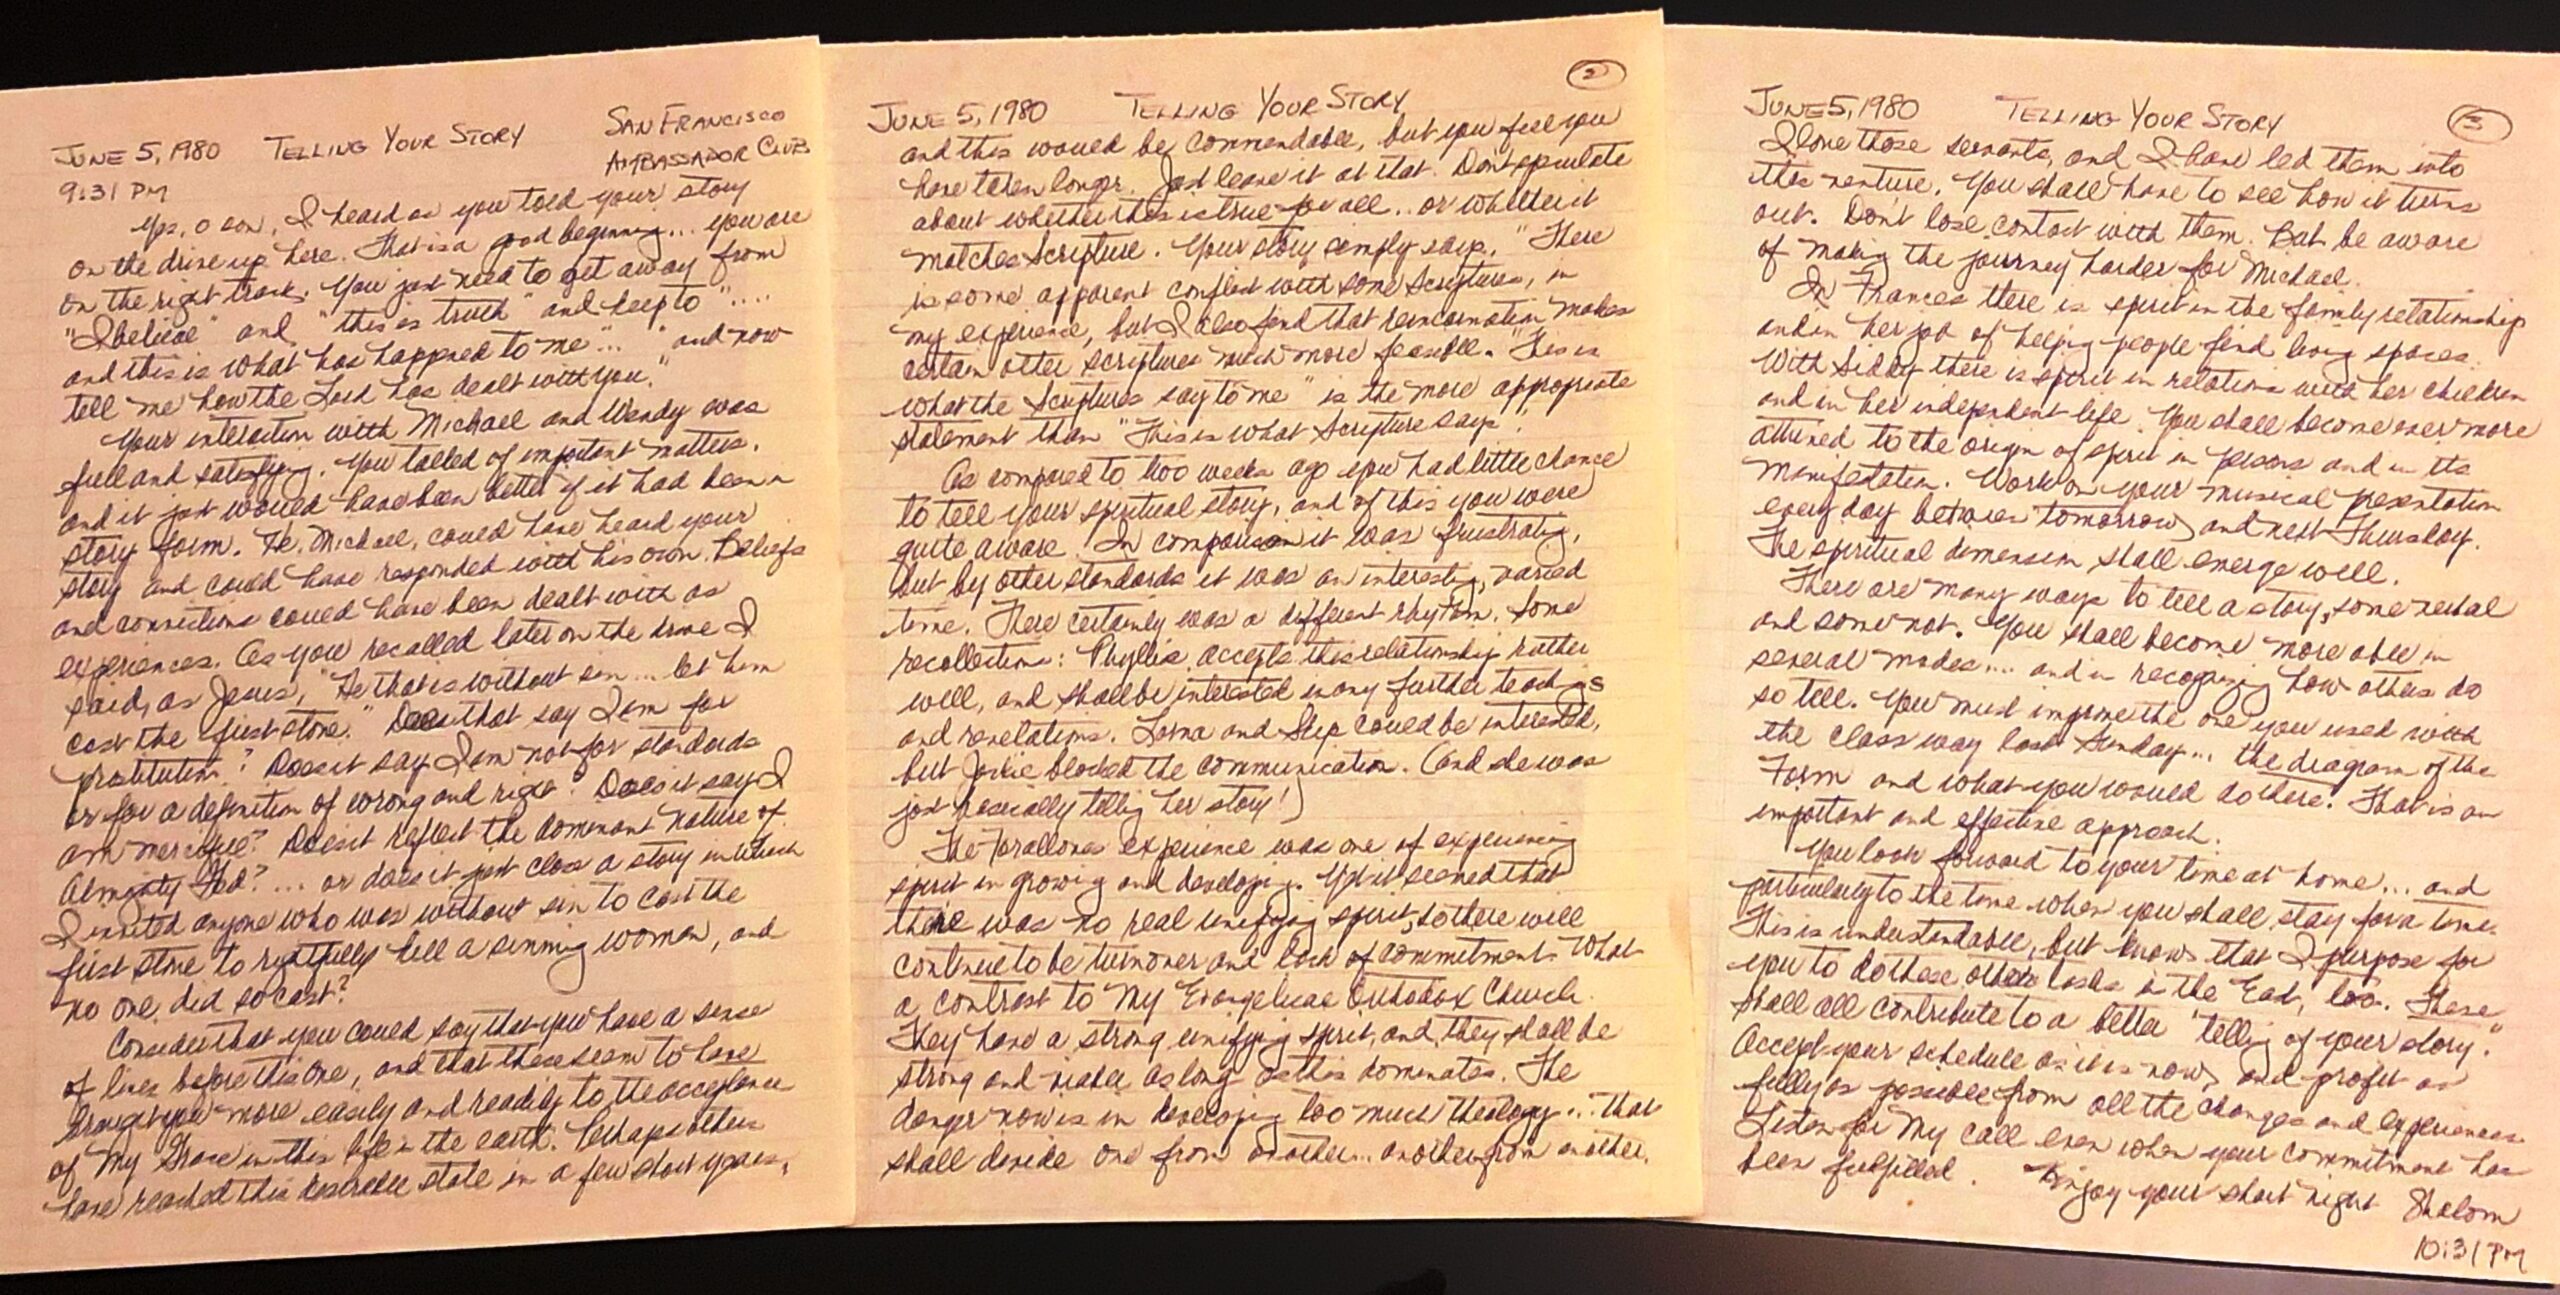 JUNE 5, 1980 TELLING YOUR STORY SAN FRANCISCO
AMBASSADOR CLUB
9:31 PM
Yes, o son, I heard as you told your story
on the drive up here. That is a good beginning... you are
on the right track. You just need to get away from
"I believe" and "this is truth" and keep to "....
and this is what has happened to me"... "and now
tell me how the Lord has dealt with you."
Your interaction with Michael and Wendy was
full and satisfying. You talked of important matters,
and it just would have been better if it had been in
story form. He, Michael, could have heard your
story and could have responded with his own. Beliefs
and convictions could have been dealt with as
experiences. As you recalled later on the drive I
said, as Jesus, "He that is without sin... let him
cast the first stone." Does that say I am for
prostitution? Does it say I am not for standards
or for a definition of wrong and right? Does it say I
am merciful? Does it reflect the dominant nature of
Almighty God? ... or does it just close a story in which
I invited anyone who was without sin to cast the
first stone to rightfully kill a sinning woman, and
no one did so cast?
Consider that you could say that you have a sense
of lives before this one, and that these seem to have
brought you more easily and readily to the acceptance
of My Grace in this life in the earth. Perhaps others
have reached this desirable state in a few short years,
JUNE 5, 1980 TELLING YOUR STORY 2
and this would be commendable, but you feel you
have taken longer. Just leave it at that. Don't speculate
about whether this is true for all... or whether it
matches Scripture. Your story simply says, "There
is some apparent conflict with some Scriptures, in
my experience, but I also find that reincarnation makes
certain other scriptures much more feasible." "This is
what the Scriptures say to me" is the more appropriate
statement than "This is what Scripture says".
As compared to two weeks ago you had little chance
to tell your spiritual story, and of this you were
quite aware. In comparison it was frustrating,
but by other standards it was an interesting, varied
time. There certainly was a different rhythm. Some
recollections: Phyllis accepts this relationship rather
well, and shall be interested in any further teachings
and revelations. Lorna and Skip could be interested,
but Jackie blocked the communication. (and she was
just basically telling her story!)
The Farallones experience was one of experiencing
spirit in growing and developing. Yet it seemed that
there was no real unifying spirit, so there will
continue to be turnover and lack of commitment. What
a contrast to My Evangelical Orthodox Church.
They have a strong unifying spirit, and they shall be
strong and viable as long as this dominates. The
danger now is in developing too much theology... that
shall divide one from another... another from another.
JUNE 5, 1980 TELLING YOUR STORY 3
I love those servants, and I have led them into
this venture. You shall have to see how it turns
out. Don't lose contact with them. But be aware
of making the journey harder for Michael.
In Frances there is spirit in the family relationship
and in her job of helping people find living spaces.
With Siddy there is spirit in relations with her children
and in her independent life. You shall become ever more
attuned to the origin of spirit in persons and in its
manifestation. Work on your musical presentation
every day between tomorrow and next Thursday.
The spiritual dimension shall emerge well.
There are many ways to tell a story, some verbal
and some not. You shall become more able in
several modes.... and in recognizing how others do
so tell. You must improve the one you used with
the class way last Sunday... the diagram of the
Farm and what you would do there. That is an
important and effective approach.
You look forward to your time at home... and
particularly to the time when you shall stay for a time.
This is understandable, but know that I purpose for
you to do these other tasks in the East, too. These
shall all contribute to a better "telling of your story".
Accept your schedule as it is now, and profit as
fully as possible from all the changes and experiences.
Listen for My call even when your commitment has
been fulfilled. Enjoy your short night Shalom
10:31 PM